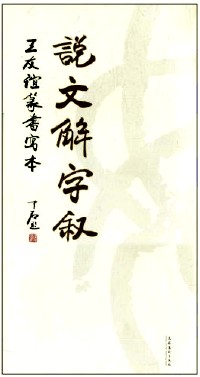 说文解字叙
王友谊篆书写本